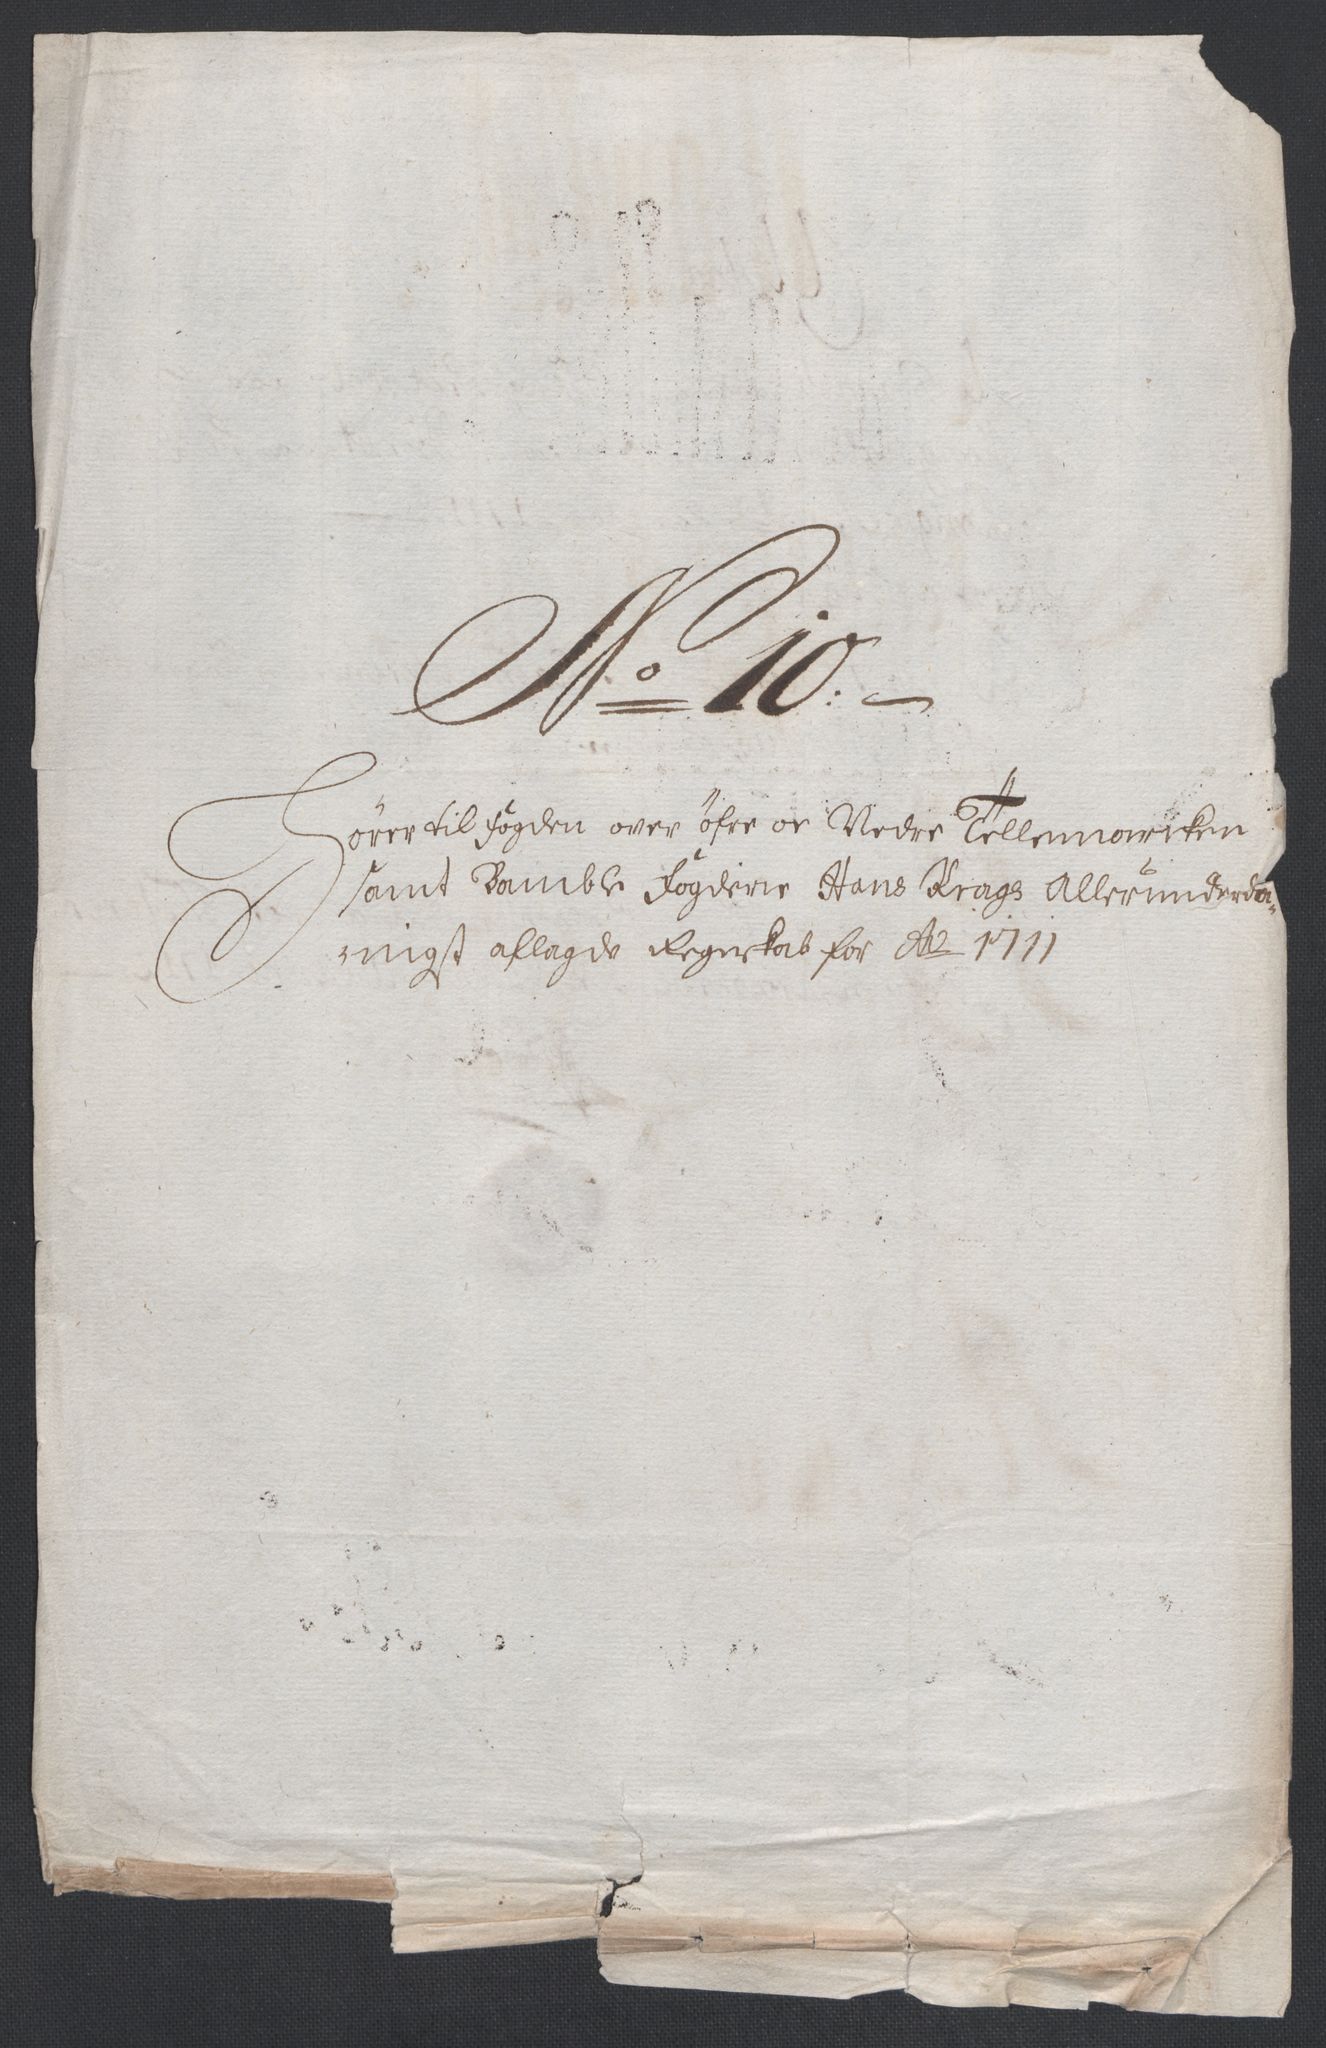 No 10.
Hører til fogden over øfre oc Nedre Tellemarcken
samt Bamble fogderie Hans Krags Allerunderda=
nigst aflagde Regnskab for Ao 1711